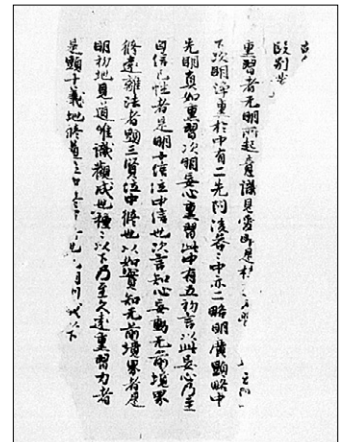 熏習者无明所起意識見愛即是枝
下次明淨熏於中有二先問後答〻中亦二略明廣顯略中
先明真如熏習次明妄心熏習此中有五初言以此妄心乃至
自信己性者是明十信位中信也次言知心妄動无前境界
修遠離法者顯三賢位中修也以如實知无前境界者是
明初地見道唯識觀成也種〻以下乃至久遠熏習力者
是顯十地修道